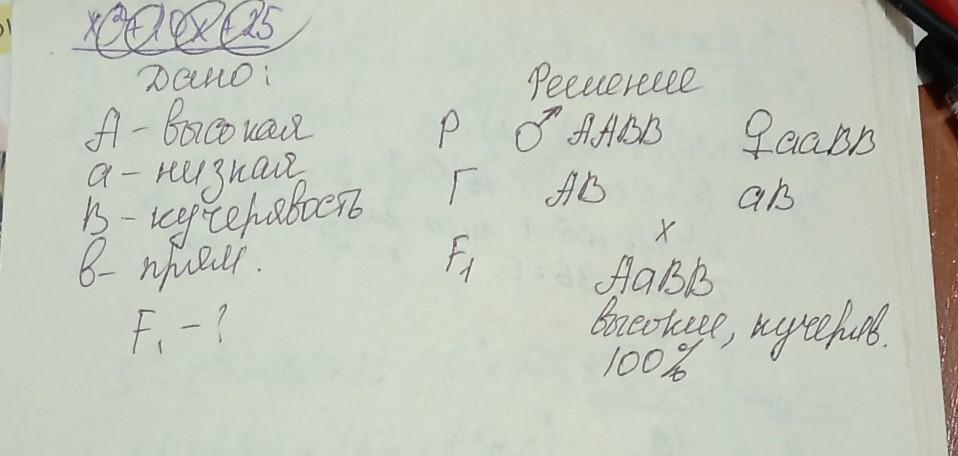 x²+10x+25
Дано:
А - высокая
а - низкая
В - кучерявость
в - прям.
F₁ - ?
Решение
Р ♂ ААВВ ♀ ааВВ
Г АВ аВ
х
F₁ АаВВ
высокие, кучеряв.
100%